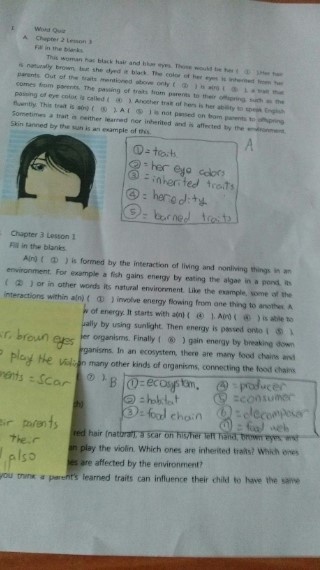 1. Word Quiz
A. Chapter 2 Lesson 3
Fill in the blanks.
This woman has black hair and blue eyes. Those would be her ( ① ). Her hair
is naturally brown, but she dyed it black. The color of her eyes is inherited from her
parents. Out of the traits mentioned above only ( ② ) is a(n) ( ③ ), a trait that
comes from parents. The passing of traits from parents to their offspring, such as the
passing of eye color is called ( ④ ). Another trait of hers is her ability to speak English
fluently. This trait is a(n) ( ⑤ ). A ( ⑤ ) is not passed on from parents to offspring.
Sometimes a trait is neither learned nor inherited and is affected by the environment.
Skin tanned by the sun is an example of this.
A
① = traits
② = her eye color
③ = inherited traits
④ = heredity
⑤ = learned traits
Chapter 3 Lesson 1
Fill in the blanks.
A(n) ( ① ) is formed by the interaction of living and nonliving things in an
environment. For example a fish gains energy by eating the algae in a pond, its
( ② ) or in other words its natural environment. Like the example, some of the
interactions within a(n) ( ① ) involve energy flowing from one thing to another. A
of energy. It starts with a(n) ( ④ ). A(n) ( ④ ) is able to
ually by using sunlight. Then energy is passed onto ( ⑤ ),
er organisms. Finally ( ⑥ ) gain energy by breaking down
rganisms. In an ecosystem, there are many food chains and
n many other kinds of organisms, connecting the food chains
brown eyes
play the violin
ments = scar
eir parents
their
also
B
① = ecosystem.
② = habitat
③ = food chain
④ = producer
⑤ = consumer
⑥ = decomposer
⑦ = food web
red hair (natural), a scar on his/her left hand, brown eyes, and
an play the violin. Which ones are inherited traits? Which ones
es are affected by the environment?
you think a parent's learned traits can influence their child to have the same